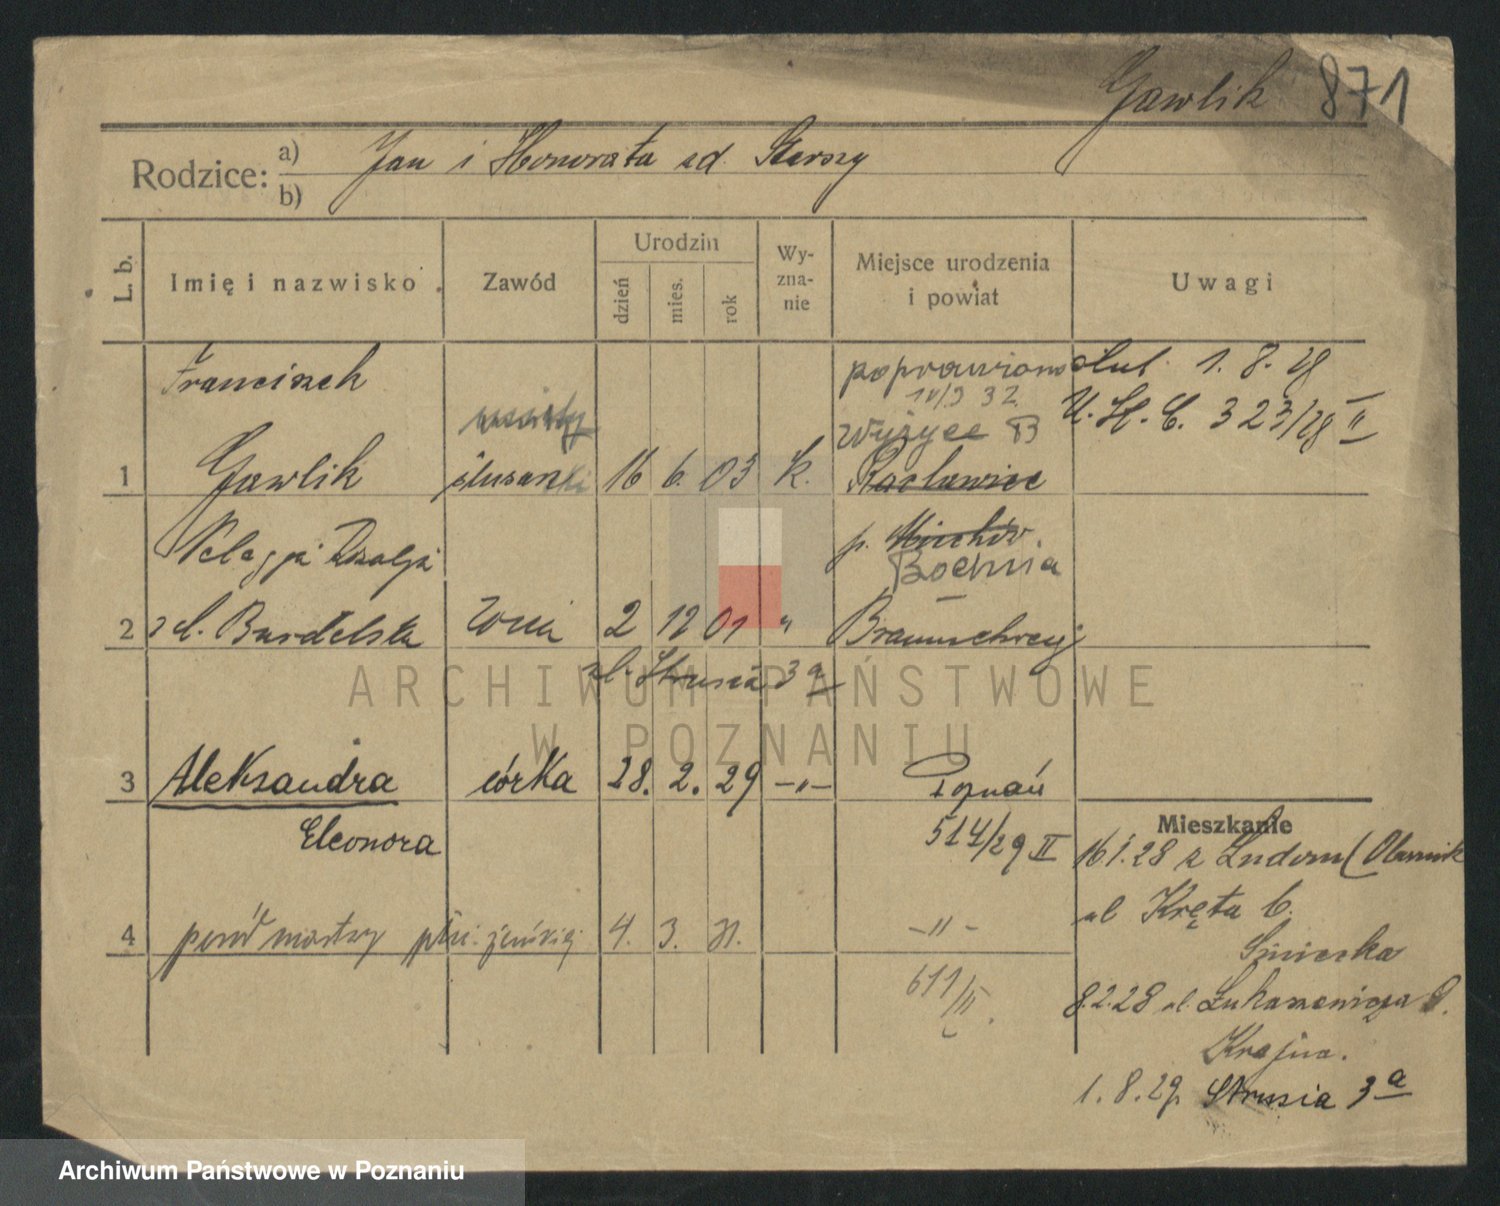 Gawlik 871
Rodzice: a) b) Jan i Honorata zd.
L. b. Imię i nazwisko Zawód Urodzin dzień mies. rok Wy-zna-nie Miejsce urodzenia i powiat Uwagi
Franciszek poprawiono ślub. 1. 8. 28
10/3 32 U. St. C. 323/28 II
Wyżyce B
1 Gawlik ślusarski 16 6. 03 k. Racławice
Pelagja p. Miechów.
Bochnia
2 zd. Burdelska żona 2 12 01 " Braunschweig
ul. Strusia 3a
ARCHIWUM PAŃSTWOWE
W POZNANIU
3 Aleksandra córka 28. 2. 29 -"- Poznań
Eleonora 514/29 II
Mieszkanie
16.1.28 z Ludom (Obornik
ul Kręta 6.
4 poród martwy płci żeńskiej 4. 3. 31. -"-
611/II.
8.2.28 ul.
Krajna.
1. 8. 29. Strusia 3a
Archiwum Państwowe w Poznaniu